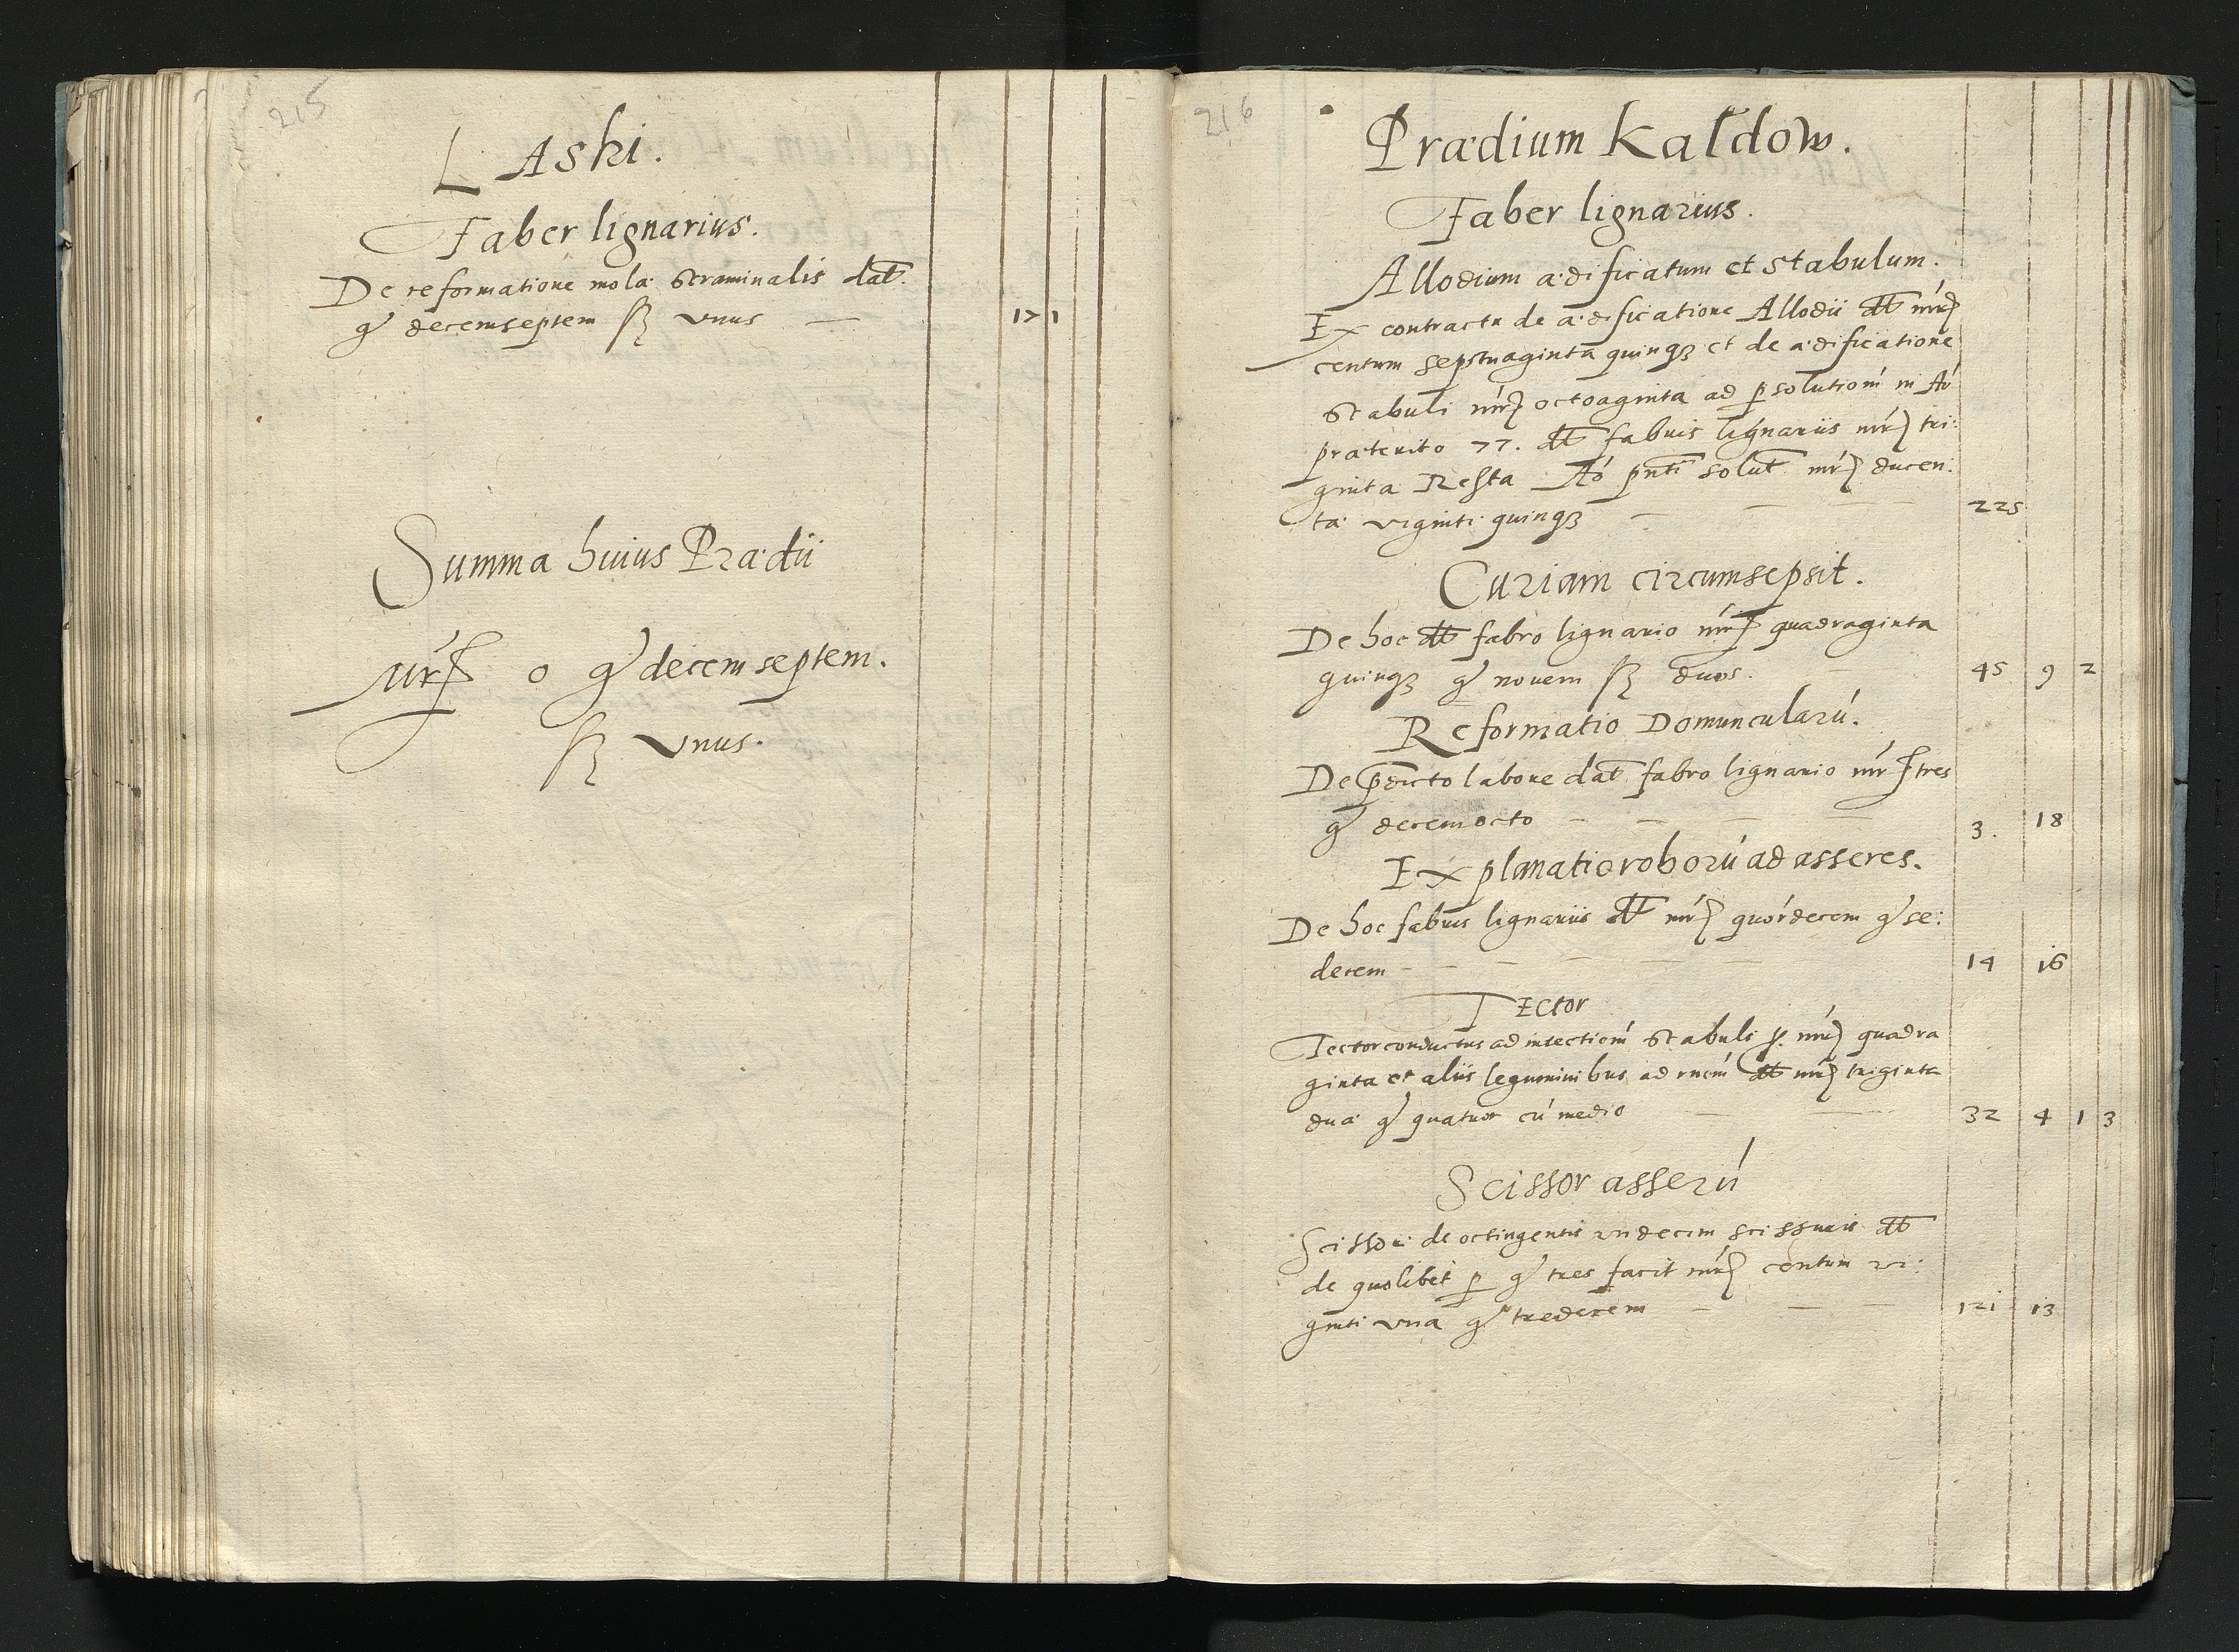 215
LAski.
Faber lignarius.
De reformatione molæ straminalis dat.
gr decemseptem ß vnus — 17 1
Summa huius Prædii
Mrc o gr decem septem.
ß vnus.
216
Prædium Kaldow.
Faber lignarius.
Allodium ædificatum et stabulum.
Ex contractu de ædificatione Allodii dt mrc
centum septuaginta quinqȝ et de ædificatione
Stabuli mrc octoaginta ad psolutioné in Aó
præterito 77. dt fabris lignariis mrc tri:
ginta Resta Aó pnti solut mrc ducen:
tæ viginti quinqȝ — — — 225
Curiam circumsepsit.
De hoc dt fabro lignario mrc quadraginta
quinqȝ gr novem ß duos. 45 9 2
Reformatio Domuncularú.
De pdicto labore dat fabro lignario mrc tres
gr decemocto — — — — 3. 18
Explanatio roború ad asseres.
De hoc fabris lignariis dt mrc quórdecem gr se:
decem — — — — — 14 16
TEctor
Tector conductus ad intectioné Stabuli p. mrc quadra
ginta et aliis leguminibus ad dt mrc triginta
duæ gr quatuor cú medio — — 32 4 1 3
Scissor asserú
Scissori de octingentis vndecim scissuris dt
de quolibet p gr tres facit mrc centum vi:
ginti vna gr tredecem — — — 121 13